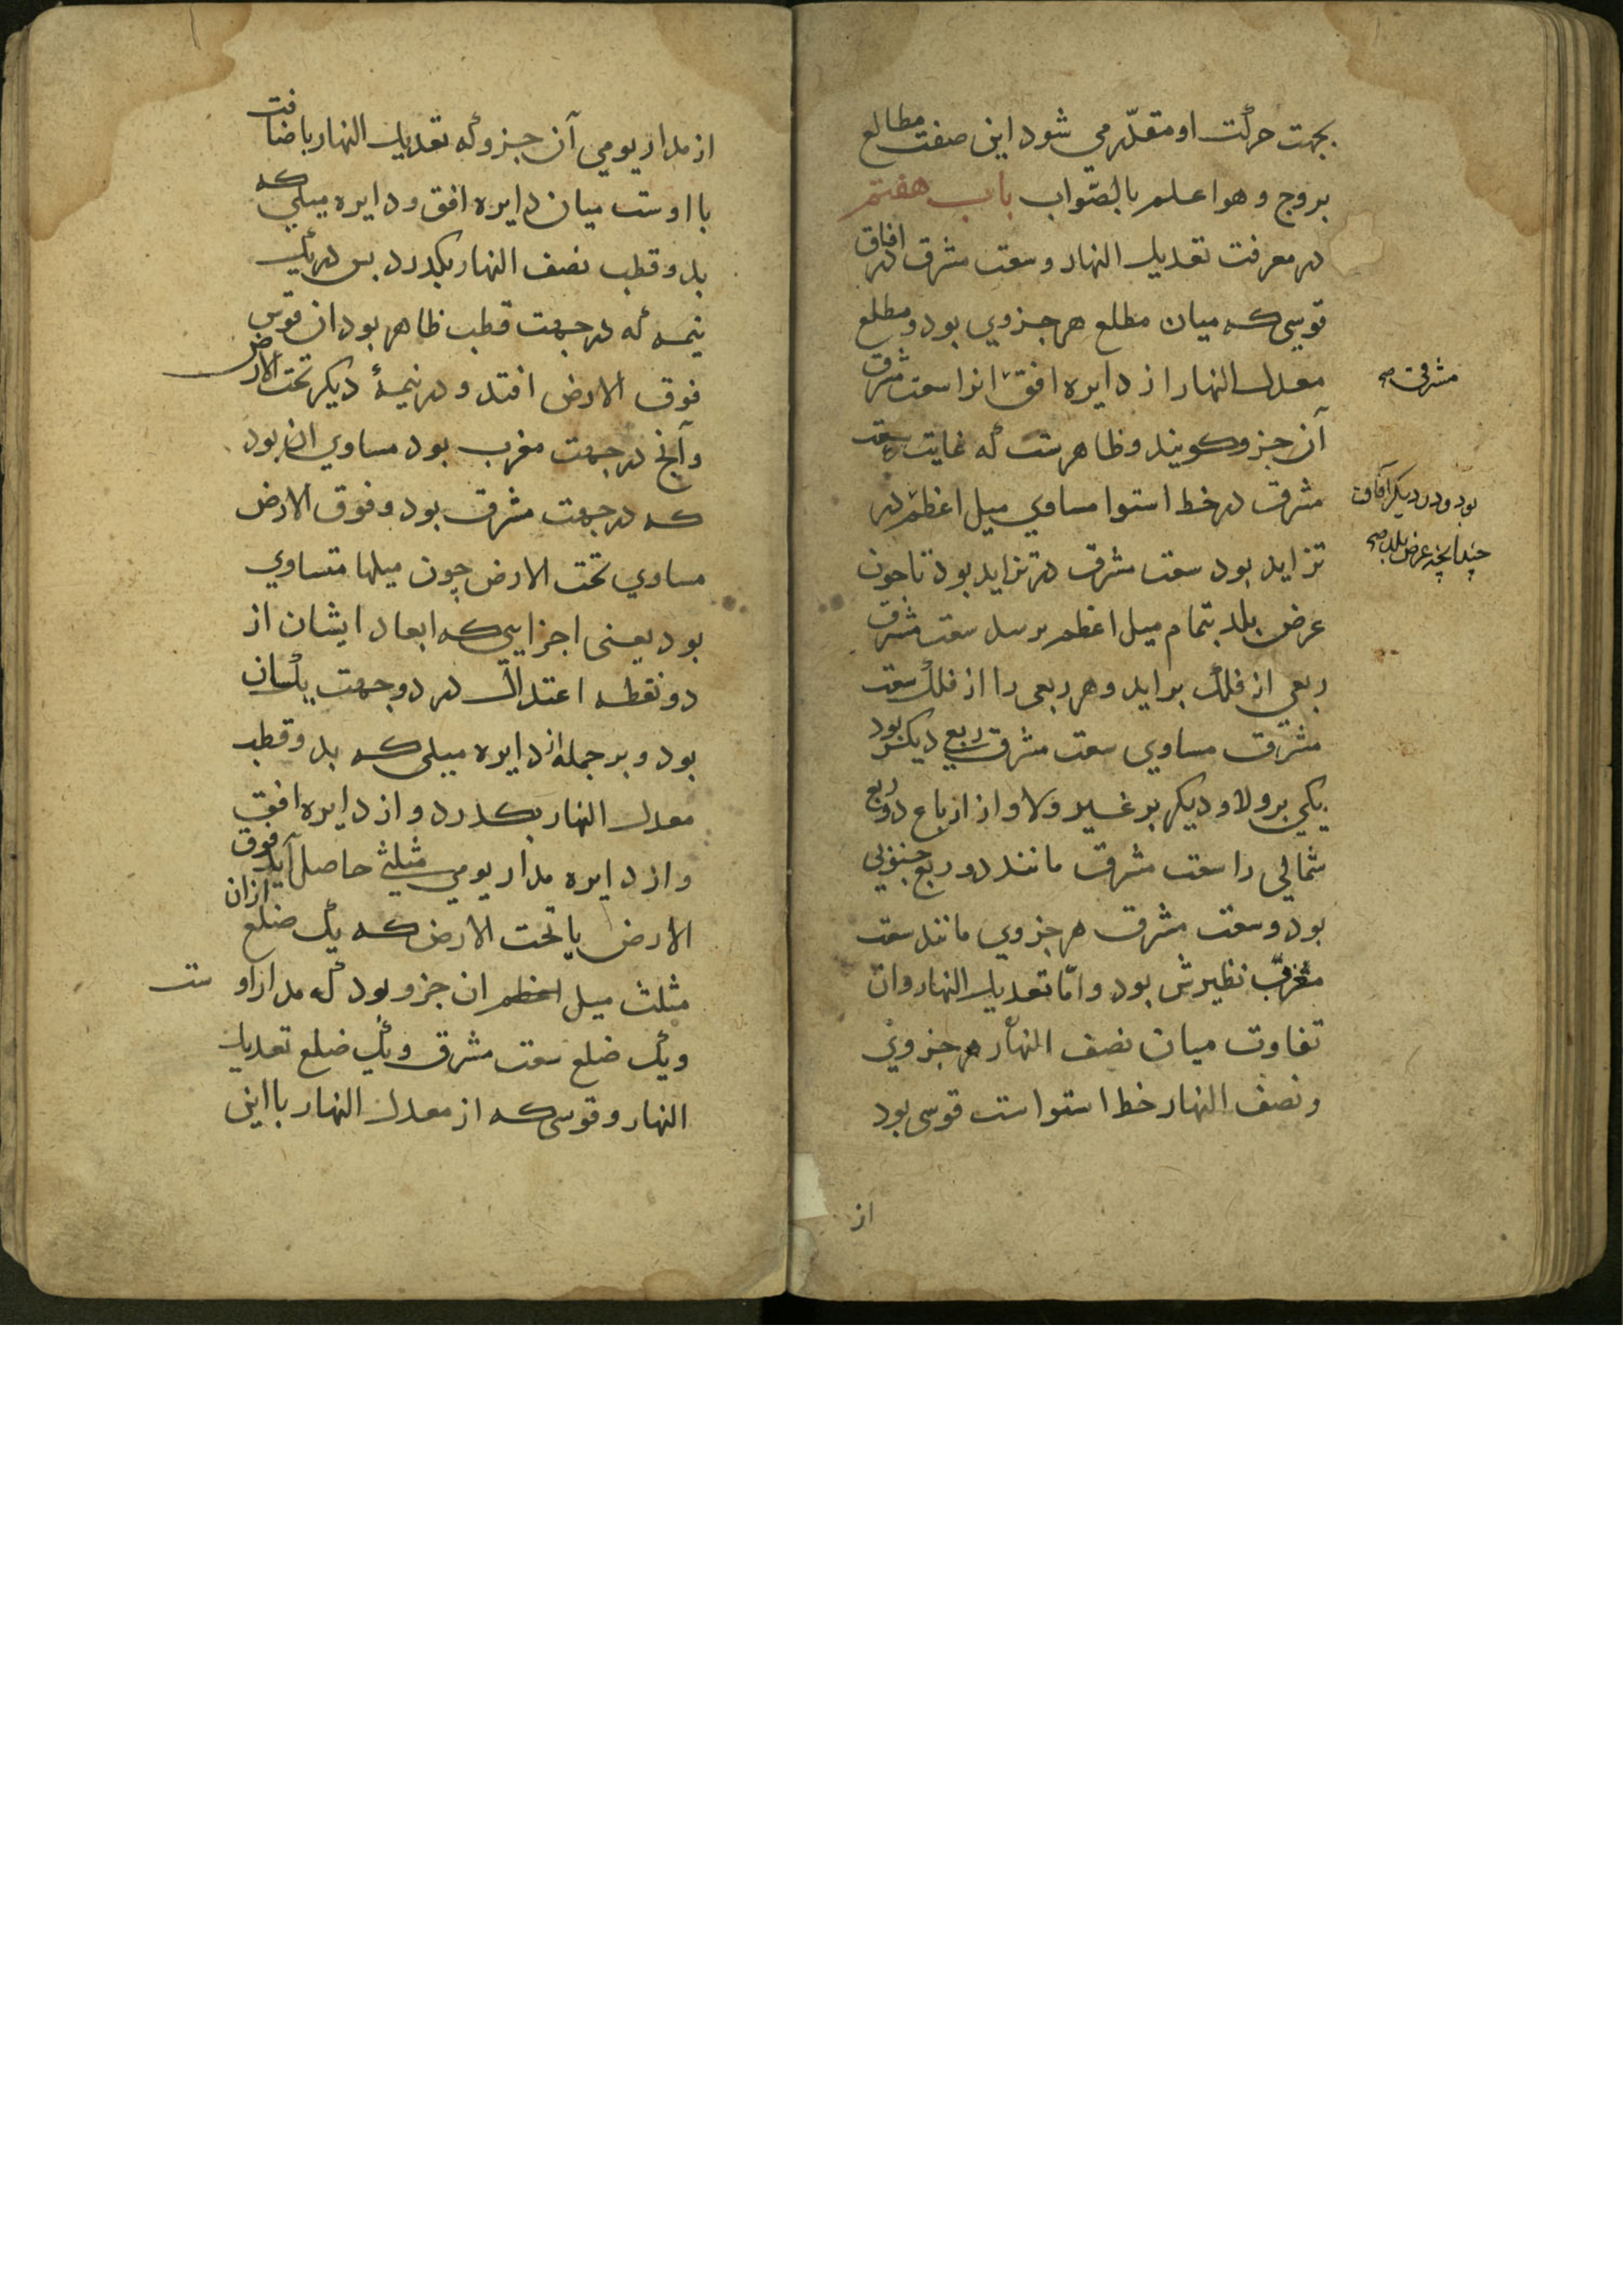 بجهت حرکت او مقدّر می شود این صفت مطالع
بروج و هو اعلم بالصّواب باب هفتم
در معرفت تعدیل النهار و سعت مشرق در افاق
قوسی که میان مطلع هر جزوی بود و مطلع
معدل النهار از دایره افق انرا سعت مشرق
مشرقی صح
آن جزو کویند و ظاهرست که غایت سعت
مشرق در خط استوا مساوی میل اعظم در
بود و در دیکر آفاق
چندانچه عرض بلد صح
تزاید بود سعت مشرق در تزاید بود تا چون
عرض بلد بتمام میل اعظم برسد سعت مشرق
ربعی از فلک براید و هر ربعی را از فلک سعت
مشرق مساوی سعت مشرق ربع دیکر بود
یکی بر ولا و دیکر بر غیر ولا و از ارباع دو ربع
شمالی را سعت مشرق مانند دو ربع جنوبی
بود و سعت مشرق هر جزوی مانند سعت
مغرب نظیرش بود و امّا تعدیل النهار و ان
تفاوت میان نصف النهار هر جزوی
و نصف النهار خط استواست قوسی بود
از
از مدار یومی آن جزو که تعدیل النهار باضافت
با اوست میان دایره افق و دایره میلی که
بدو قطب نصف النهار بکذرد بس در یک
نیمه که در جهت قطب ظاهر بود ان قوس
فوق الارض افتد و در نیمهٔ دیکر تحت الارض
و آنچ در جهت مغرب بود مساوی ان بود
که در جهت مشرق بود و فوق الارض
مساوی تحت الارض چون میلها متساوی
بود یعنی اجزایی که ابعاد ایشان از
دو نقطه اعتدال در دو جهت یکسان
بود و بر جمله از دایره میلی که بدو قطب
معدل النهار بکذرد و از دایره افق
و از دایره مدار یومی مثلثی حاصل آید فوق
الارض یا تحت الارض که یک ضلع ازان
مثلث میل اعظم ان جزو بود که مدار اوست
و یک ضلع سعت مشرق و یک ضلع تعدیل
النهار و قوسی که از معدل النهار با این